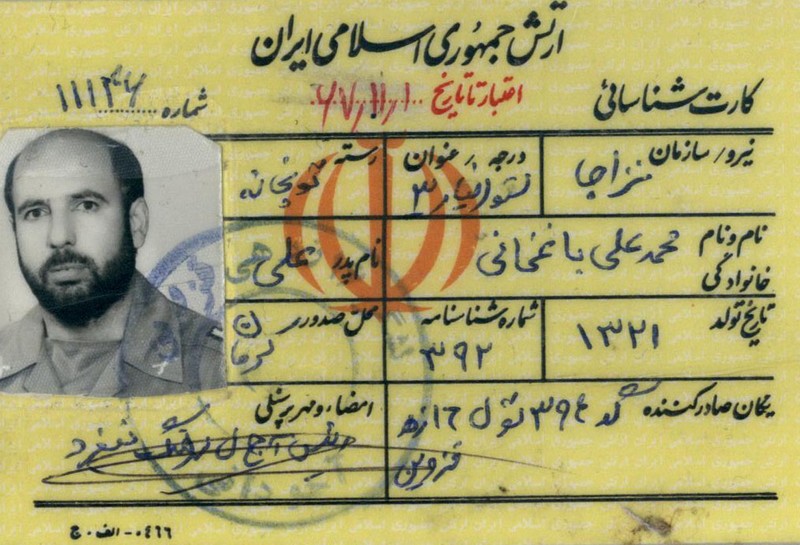 ارتش جمهوری اسلامی ایران
کارت شناسائی
اعتبار تا تاریخ ۶۷/۱۱/۱
شماره ۱۱۱۳۴۶
نیرو/سازمان نزاجا
درجه/عنوان ستوانیار ۳
رسته توپخانه
نام و نام خانوادگی محمدعلی باغخانی
نام پدر علی
تاریخ تولد ۱۳۲۱
شماره شناسنامه ۳۹۲
محل صدور کرمان
یگان صادرکننده کد ۳۹۴ ل ۱۶ زرهی
قزوین
امضاء و مهر پرسنلی
۰۴۶۶-الف-ج